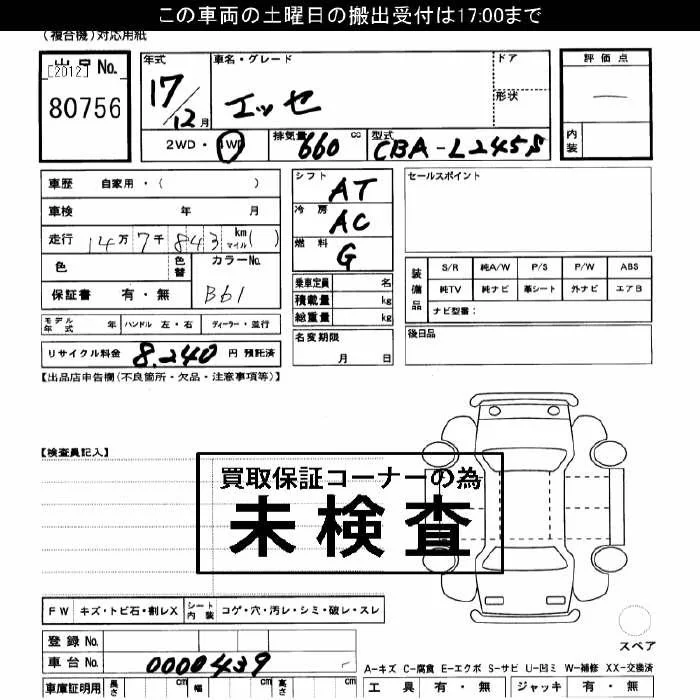 この車両の土曜日の搬出受付は17:00まで
(複合機)対応用紙
出品No.
[2012]
80756
年式
17/12月
車名・グレード
エッセ
ドア
形状
評価点
―
内装
2WD・4WD
排気量 660 cc
型式 CBA-L245S
車歴 自家用・( )
車検 年 月
走行 14万7千843 km マイル ( )
色
色替
カラーNo.
B61
保証書 有・無
モデル年式 年
ハンドル 左・右
ディーラー・並行
リサイクル料金 8,240 円 預託済
シフト AT
冷房 AC
燃料 G
乗車定員 名
積載量 kg
総重量 kg
名変期限
月 日
セールスポイント
装備品
S/R 純A/W P/S P/W ABS
純TV 純ナビ 革シート 外ナビ エアB
ナビ型番:
後日品
【出品店申告欄(不良箇所・欠品・注意事項等)】
【検査員記入】
買取保証コーナーの為
未検査
FW キズ・トビ石・割レX
シート内装 コゲ・穴・汚レ・シミ・破レ・スレ
登録No.
車台No. 0000439
車庫証明用 長さ cm 幅 cm 高さ cm
スペア
A-キズ C-腐食 E-エクボ S-サビ U-凹ミ W-補修 XX-交換済
工具 有・無 ジャッキ 有・無